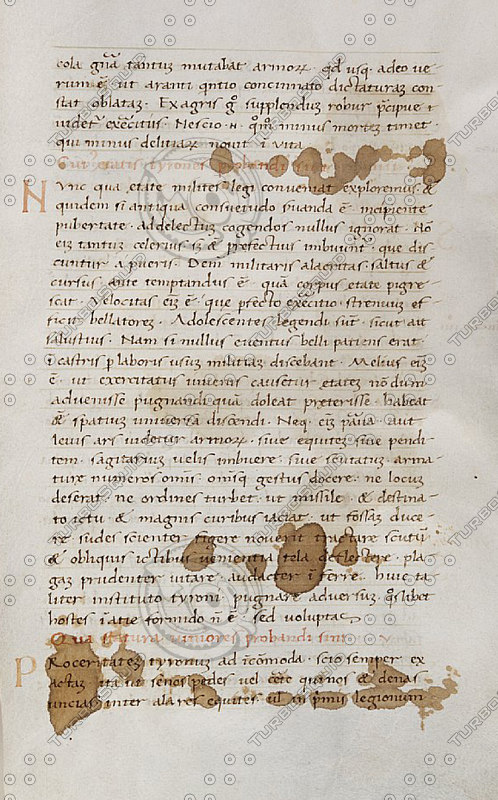 cola gnā tantuꝫ mutabat armoꝝ. qđ usqꝫ adeo ue
rum ē, ut aranti qntio concinnato dictaturaꝫ con
stat oblataꝫ. Ex agris g supplenduꝫ robur pcipue i
uidetr exercitus. Nescio .n. qm minus morteꝫ timet
qui minus delitiaꝝ nouit i uita
Cui etatis tyrones probandi sint
Nunc qua etate milites legi conueniat exploremus. &
quidem si antiqua consuetudo suanda ē. incipiente
pubertate. ad delectuꝫ cogendos nullus ignorat. Nō
eiꝫ tantuꝫ celerius sꝫ & pfectius imbuunt. que dis
cuntur a pueris. Dein militaris alacritas. saltus &
cursus. ante temptandus ē. quā corpus etate pigre
scat. Velocitas eiꝫ ē. que pcepto exercitio. strenuuꝫ ef
ficit bellatoreꝫ. Adolescentes legendi sūt. sicut ait
salustius. Nam si nullus euentus belli patiens erat
i castris p laboris usuꝫ militiaꝫ discebant. Melius eiꝫ
ē. ut exercitatus iuuenis causetur etateꝫ nōdum
aduenisse pugnandi quā doleat preterisse. habeat
& spatium uniuersa discendi. Neqꝫ eiꝫ paua. aut
leuis ars uidetur armoꝝ. siue equiteꝫ siue pendi
tem. sagitariuꝫ uelis imbuere. siue scutatuꝫ. arma
ture numeros omis. omisqꝫ gestus docere. ne locuꝫ
deserat. ne ordines turbet. ut missile. & destina
to ictu. & magnis curibus iaciat. ut fossaꝫ duce
re sudes scienter figere nouerit tractare scutuꝫ
& obliquis ictibus uenientia tela deflectere. pla
gaꝫ prudenter uitare. audacter iferre. huic ta
liter instituto tyroni pugnare aduersuꝫ qslibet
hostes i atie formido n ē. sed voluptas
Qua statura iuniores probandi sint v
Proceritateꝫ tyronuꝫ ad icōmoda. scio semper ex
actaꝫ ita ut senos pedes vel cete quinos & denas
uncias inter alares equites ul in pmis legionum